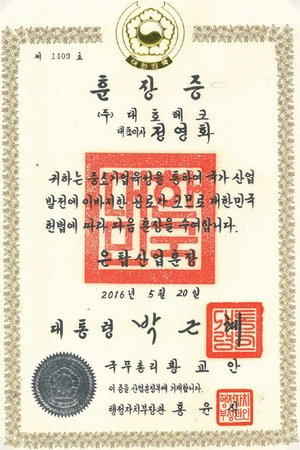 대한민국
제 1409 호
훈장증
(주) 대호테크
대표이사 정영화
귀하는 중소기업육성을 통하여 국가 산업
발전에 이바지한 공로가 크므로 대한민국
헌법에 따라 다음 훈장을 수여합니다.
은탑산업훈장
2016년 5월 20일
대통령 박근혜
국무총리 황교안
이 증을 산업훈장부에 기재합니다.
행정자치부장관 홍윤식